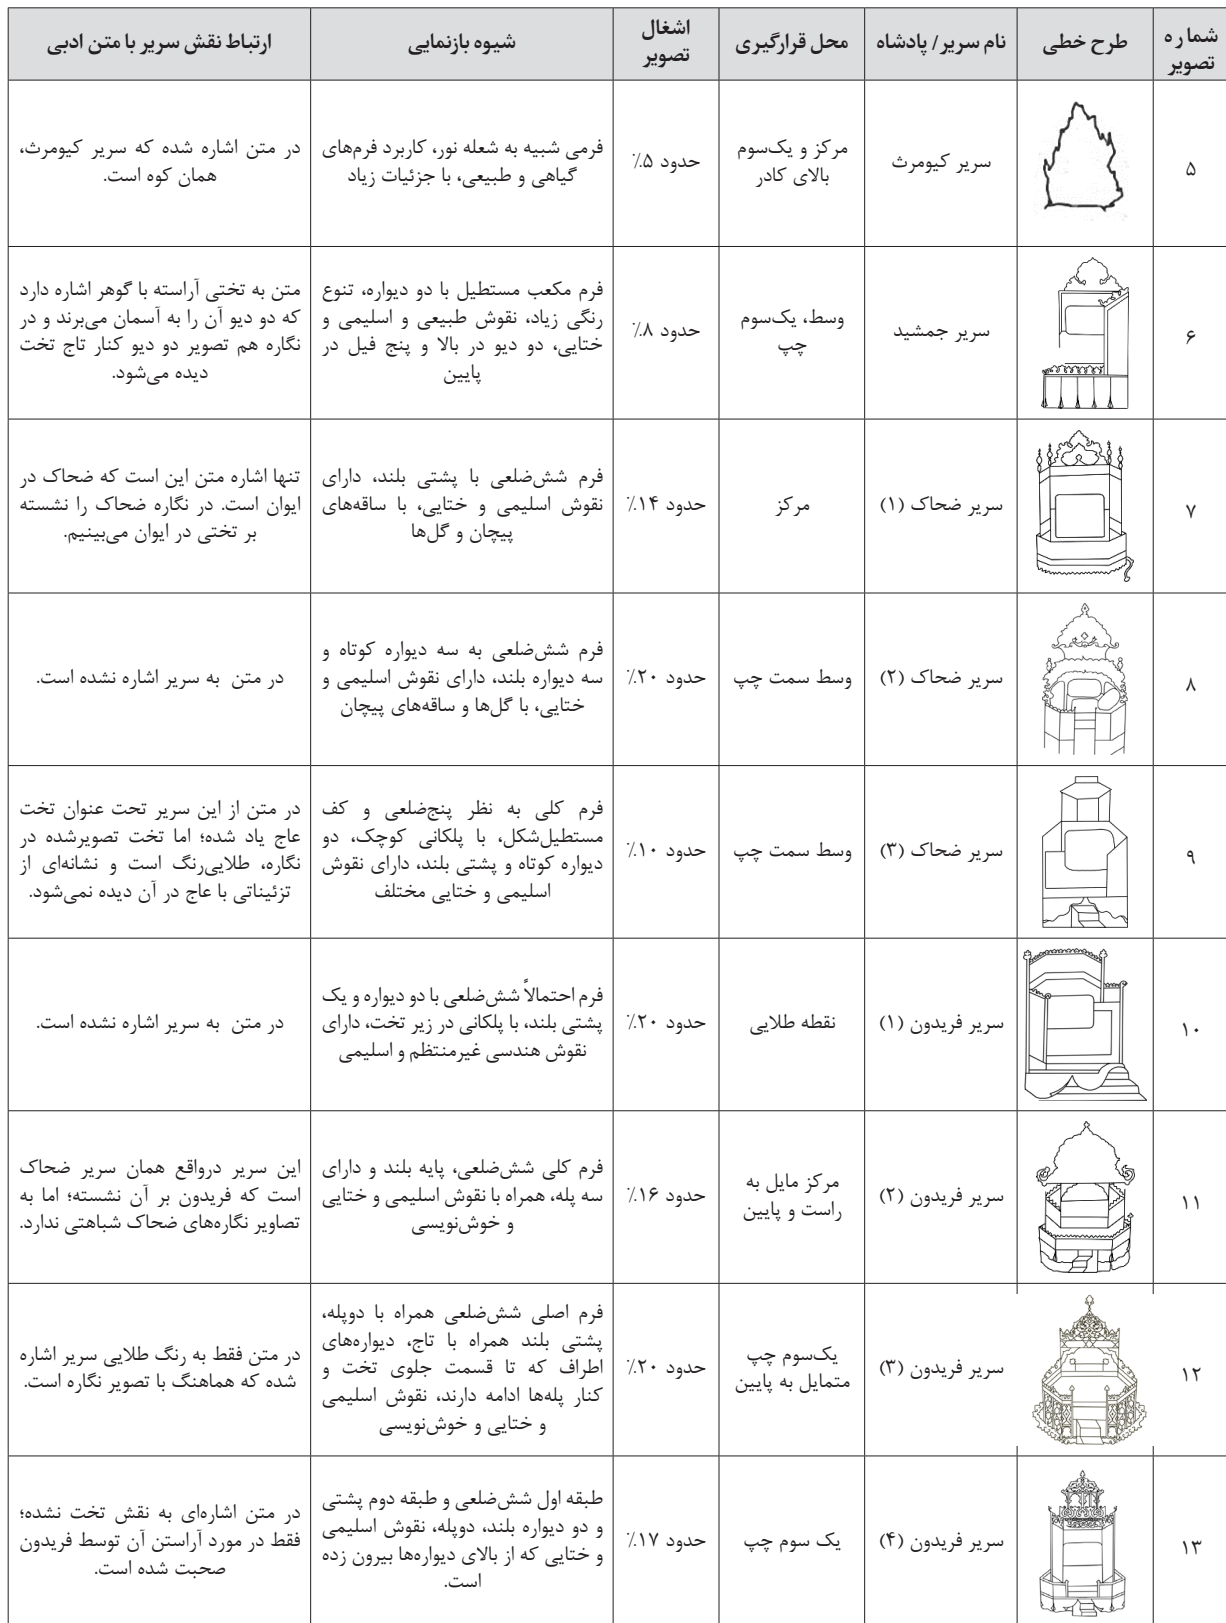 شماره
تصویر
طرح خطی
نام سریر/ پادشاه
محل قرارگیری
اشغال
تصویر
شیوه بازنمایی
ارتباط نقش سریر با متن ادبی
۵
سریر کیومرث
مرکز و یک‌سوم
بالای کادر
حدود ۵٪
فرمی شبیه به شعله نور، کاربرد فرم‌های
گیاهی و طبیعی، با جزئیات زیاد
در متن اشاره شده که سریر کیومرث،
همان کوه است.
۶
سریر جمشید
وسط، یک‌سوم
چپ
حدود ۸٪
فرم مکعب مستطیل با دو دیواره، تنوع
رنگی زیاد، نقوش طبیعی و اسلیمی و
ختایی، دو دیو در بالا و پنج فیل در
پایین
متن به تختی آراسته با گوهر اشاره دارد
که دو دیو آن را به آسمان می‌برند و در
نگاره هم تصویر دو دیو کنار تاج تخت
دیده می‌شود.
۷
سریر ضحاک (۱)
مرکز
حدود ۱۴٪
فرم شش‌ضلعی با پشتی بلند، دارای
نقوش اسلیمی و ختایی، با ساقه‌های
پیچان و گل‌ها
تنها اشاره متن این است که ضحاک در
ایوان است. در نگاره ضحاک را نشسته
بر تختی در ایوان می‌بینیم.
۸
سریر ضحاک (۲)
وسط سمت چپ
حدود ۲۰٪
فرم شش‌ضلعی به سه دیواره کوتاه و
سه دیواره بلند، دارای نقوش اسلیمی و
ختایی، با گل‌ها و ساقه‌های پیچان
در متن به سریر اشاره نشده است.
۹
سریر ضحاک (۳)
وسط سمت چپ
حدود ۱۰٪
فرم کلی به نظر پنج‌ضلعی و کف
مستطیل‌شکل، با پلکانی کوچک، دو
دیواره کوتاه و پشتی بلند، دارای نقوش
اسلیمی و ختایی مختلف
در متن از این سریر تحت عنوان تخت
عاج یاد شده؛ اما تخت تصویرشده در
نگاره، طلایی‌رنگ است و نشانه‌ای از
تزئیناتی با عاج در آن دیده نمی‌شود.
۱۰
سریر فریدون (۱)
نقطه طلایی
حدود ۲۰٪
فرم احتمالاً شش‌ضلعی با دو دیواره و یک
پشتی بلند، با پلکانی در زیر تخت، دارای
نقوش هندسی غیرمنتظم و اسلیمی
در متن به سریر اشاره نشده است.
۱۱
سریر فریدون (۲)
مرکز مایل به
راست و پایین
حدود ۱۶٪
فرم کلی شش‌ضلعی، پایه بلند و دارای
سه پله، همراه با نقوش اسلیمی و ختایی
و خوش‌نویسی
این سریر درواقع همان سریر ضحاک
است که فریدون بر آن نشسته؛ اما به
تصاویر نگاره‌های ضحاک شباهتی ندارد.
۱۲
سریر فریدون (۳)
یک‌سوم چپ
متمایل به پایین
حدود ۲۰٪
فرم اصلی شش‌ضلعی همراه با دوپله،
پشتی بلند همراه با تاج، دیواره‌های
اطراف که تا قسمت جلوی تخت و
کنار پله‌ها ادامه دارند، نقوش اسلیمی
و ختایی و خوش‌نویسی
در متن فقط به رنگ طلایی سریر اشاره
شده که هماهنگ با تصویر نگاره است.
۱۳
سریر فریدون (۴)
یک سوم چپ
حدود ۱۷٪
طبقه اول شش‌ضلعی و طبقه دوم پشتی
و دو دیواره بلند، دوپله، نقوش اسلیمی
و ختایی که از بالای دیواره‌ها بیرون زده
است.
در متن اشاره‌ای به نقش تخت نشده؛
فقط در مورد آراستن آن توسط فریدون
صحبت شده است.